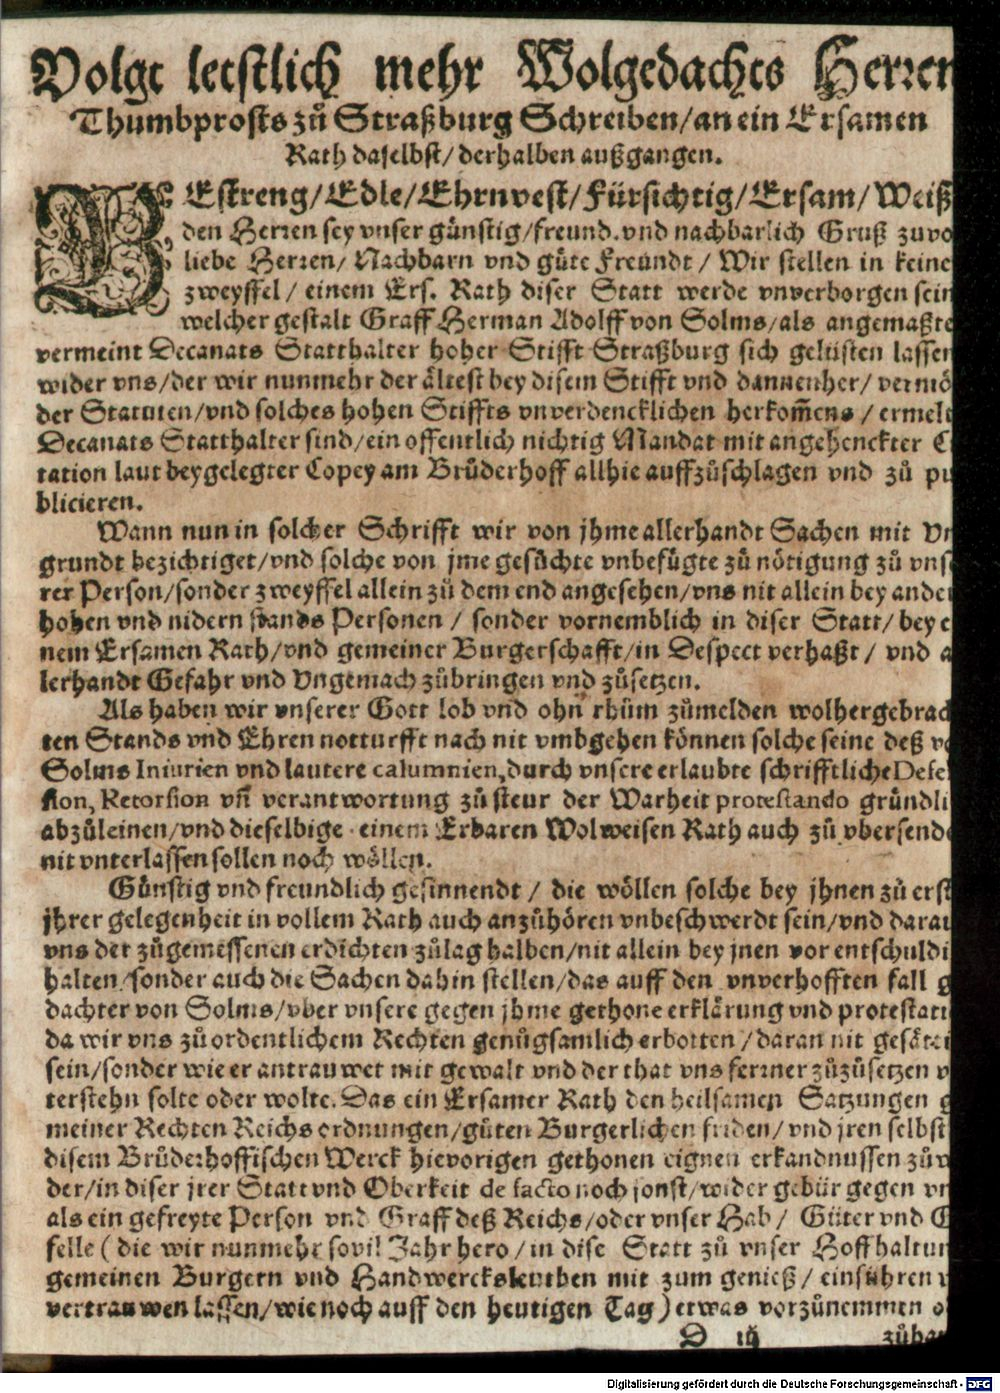 Volgt letstlich mehr Wolgedachts Herren
Thumbprosts zů Straßburg Schreiben/an ein Ersamen
Rath daselbst/ derhalben außgangen.
GEstreng/Edle/Ehrnvest/Fürsichtig/Ersam/Weiß
den Herren sey vnser günstig/freund. vnd nachbarlich Gruß zuvo
liebe Herren/ Nachbarn vnd gůte Freündt / Wir stellen in keine
zweyffel / einem Ers. Rath diser Statt werde vnverborgen sein
welcher gestalt Graff Herman Adolff von Solms/als angemaßte
vermeint Decanats Statthalter hoher Stifft Straßburg sich gelüsten lassen
wider vns/der wir nunmehr der ältest bey disem Stifft vnd dannenher/ vermö
der Statuten/vnd solches hohen Stiffts vnverdencklichen herkom̃ens / ermelt
Decanats Statthalter sind/ein offentlich nichtig Mandat mit angehenckter C
tation laut beygelegter Copey am Brůderhoff allhie auffzůschlagen vnd zů pu
blicieren.
Wann nun in solcher Schrifft wir von jhme allerhandt Sachen mit Vn
grundt bezichtiget/vnd solche von jme gesůchte vnbefůgte zů nötigung zů vnse
rer Person/sonder zweyffel allein zů dem end angesehen/vns nit allein bey ander
hohen vnd nidern stands Personen / sonder vornemblich in diser Statt/ bey e
nem Ersamen Rath/vnd gemeiner Burgerschafft/in Despect verhaßt / vnd a
lerhandt Gefahr vnd Vngemach zůbringen vnd zůsetzen.
Als haben wir vnserer Gott lob vnd ohn rhům zůmelden wolhergebrach
ten Stands vnd Ehren notturfft nach nit vmbgehen können solche seine deß vo
Solms Iniurien vnd lautere calumnien,durch vnsere erlaubte schrifftliche Defen
sion, Retorsion vn̄ verantwortung zů steur der Warheit protestando gründli
abzůleinen/vnd dieselbige einem Erbaren Wolweisen Rath auch zů vbersende
nit vnterlassen sollen noch wöllen.
Günstig vnd freundlich gesinnendt / die wöllen solche bey jhnen zů erst
jhrer gelegenheit in vollem Rath auch anzůhören vnbeschwerdt sein/vnd darau
vns der zůgemessenen erdichten zůlag halben/nit allein bey jnen vor entschuldi
halten/sonder auch die Sachen dahin stellen/das auff den vnverhofften fall g
dachter von Solms/vber vnsere gegen jhme gethone erklärung vnd protestati
da wir vns zů ordentlichem Rechten genůgsamlich erbotten / daran nit gesätti
sein/sonder wie er antrauwet mit gewalt vnd der that vns ferrner zůzůsetzen v
terstehn solte oder wolte. Das ein Ersamer Rath den heilsamen Satzungen g
meiner Rechten Reichs ordnungen/gůten Burgerlichen friden/ vnd jren selbst
disem Brůderhoffischen Werck hievorigen gethonen eignen erkandnussen zů w
der/in diser jrer Statt vnd Oberkeit de facto noch sonst/wider gebür gegen vn
als ein gefreyte Person vnd Graff deß Reichs/oder vnser Hab/ Güter vnd G
felle ( die wir nunmehr sovil Jahr hero / in dise Statt zů vnser Hoffhaltun
gemeinen Burgern vnd Handwercksleuthen mit zum genieß / einführen v
vertrauwen lassen/wie noch auff den heutigen Tag) etwas vorzůnemmen o
D iij zůhan
Digitalisierung gefördert durch die Deutsche Forschungsgemeinschaft - DFG